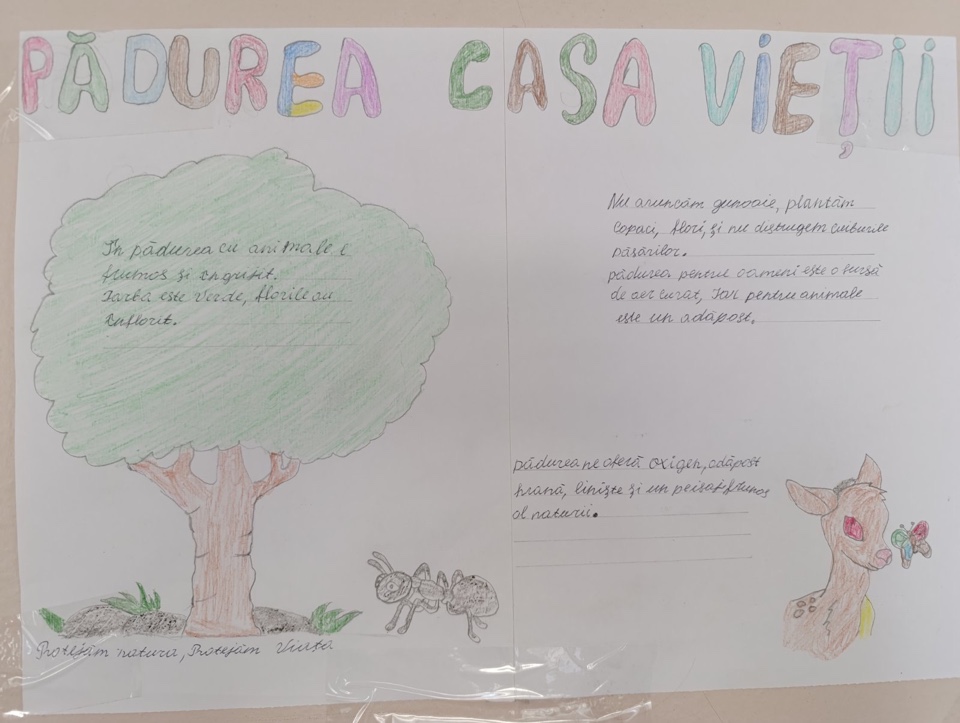 PĂDUREA CASA VIEȚII
În pădurea cu animale e
frumos și
Iarbă este verde, florile au
înflorit.
Protejăm natura, Protejăm Viața
Nu aruncăm gunoaie, plantăm
copaci, flori, și nu distrugem cuiburile
păsărilor.
pădurea pentru oameni este o sursă
de aer curat, Iar pentru animale
este un adăpost.
pădurea ne oferă oxigen, adăpost
hrană, liniște și un peisaj frumos
al naturii.